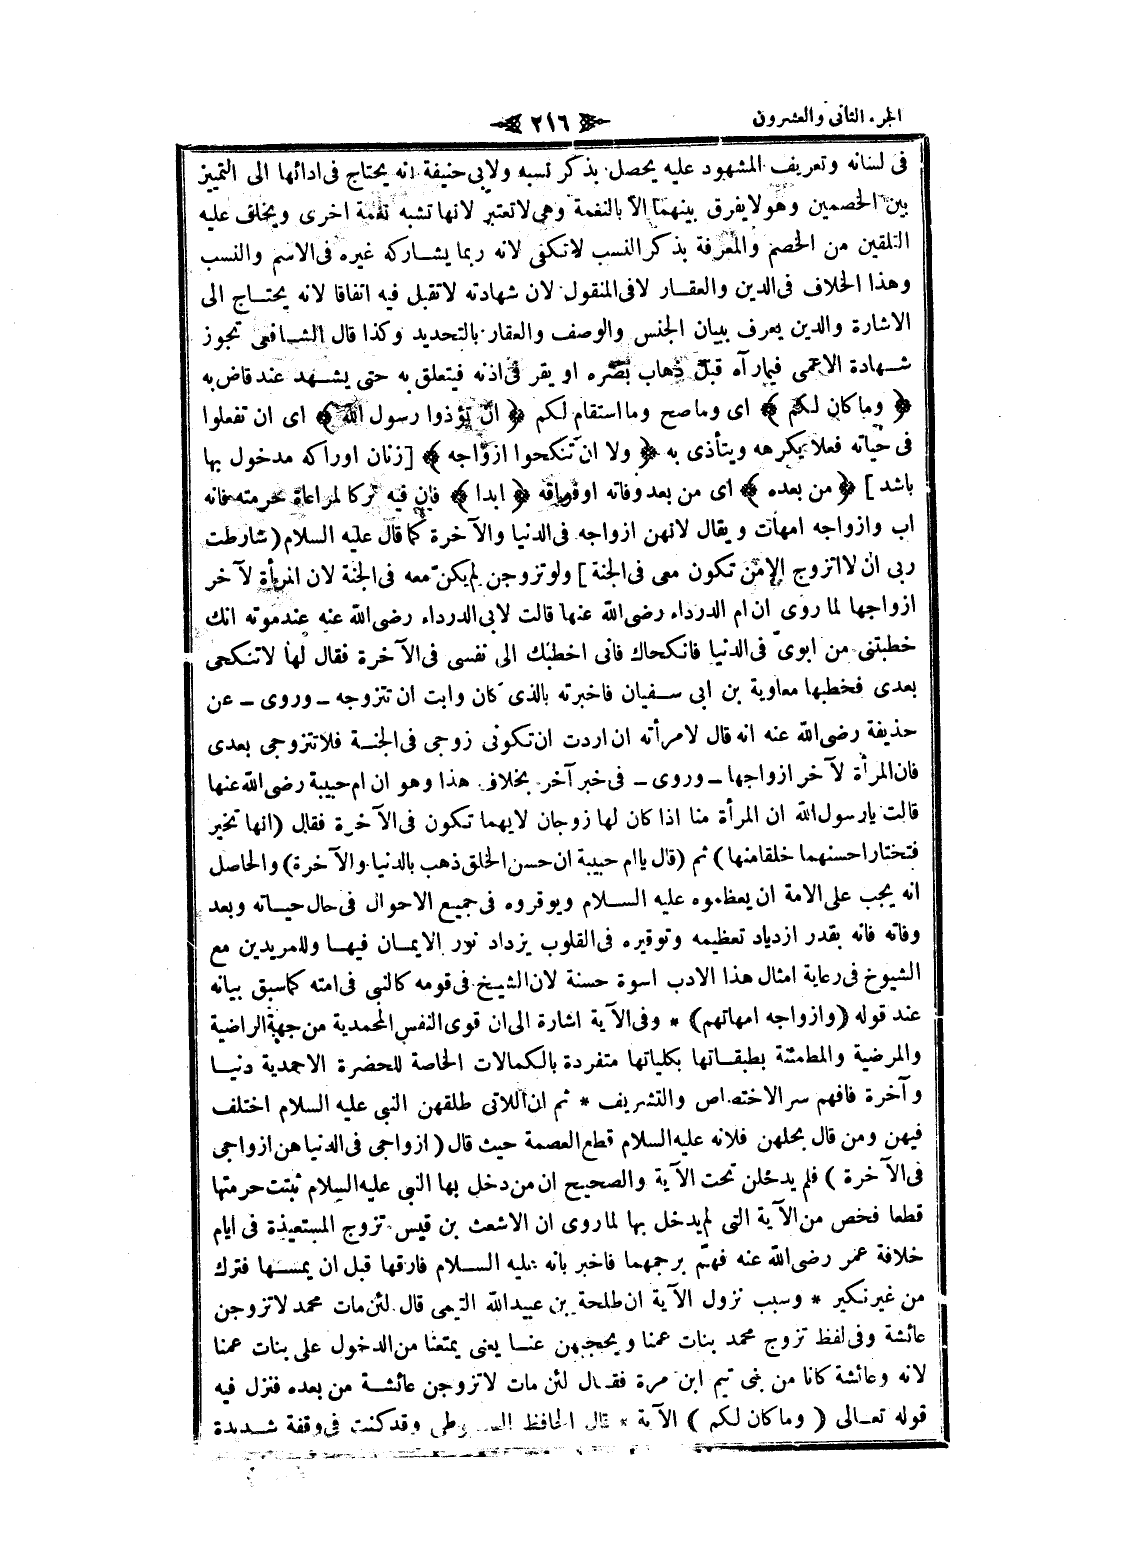 الجزء الثانى والعشرون
٢١٦
فى لسانه وتعريف المشهود عليه يحصل بذكر نسبه ولابى حنيفة انه يحتاج فى ادائها الى التمييز
بين الخصمين وهو لا يفرق بينهما الا بالنغمة وهى لا تعتبر لانها تشبه نغمة اخرى ويخاف عليه
التلقين من الخصم والمعرفة بذكر النسب لا تكفى لانه ربما يشاركه غيره فى الاسم والنسب
وهذا الخلاف فى الدين والعقار لا فى المنقول لان شهادته لا تقبل فيه اتفاقا لانه يحتاج الى
الاشارة والدين يعرف ببيان الجنس والوصف والعقار بالتحديد وكذا قال الشافعى تجوز
شهادة الاعمى فيما رآه قبل ذهاب بصره او يقر فى اذنه فيتعلق به حتى يشهد عند قاض به
﴿ وما كان لكم ﴾ اى وما صح وما استقام لكم ﴿ ان تؤذوا رسول الله ﴾ اى ان تفعلوا
فى حياته فعلا يكرهه ويتأذى به ﴿ ولا ان تنكحوا ازواجه ﴾ [زنان اورا كه مدخول بها
باشد] ﴿ من بعده ﴾ اى من بعد وفاته او فراقه ﴿ ابدا ﴾ فان فيه تركا لمراعاة حرمته فانه
اب وازواجه امهات ويقال لانهن ازواجه فى الدنيا والآخرة كما قال عليه السلام (شارطت
ربى ان لا اتزوج الا من تكون معى فى الجنة] ولو تزوجن لم يكن معه فى الجنة لان المرأة لآخر
ازواجها لما روى ان ام الدرداء رضى الله عنها قالت لابى الدرداء رضى الله عنه عند موته انك
خطبتنى من ابوى فى الدنيا فانكحاك فانى اخطبك الى نفسى فى الآخرة فقال لها لا تنكحى
بعدى فخطبها معاوية بن ابى سفيان فاخبرته بالذى كان وابت ان تتزوجه ـ وروى ـ عن
حذيفة رضى الله عنه انه قال لامرأته ان اردت ان تكونى زوجى فى الجنة فلا تتزوجى بعدى
فان المرأة لآخر ازواجها ـ وروى ـ فى خبر آخر بخلاف هذا وهو ان ام حبيبة رضى الله عنها
قالت يا رسول الله ان المرأة منا اذا كان لها زوجان لايهما تكون فى الآخرة فقال (انها تخير
فتختار احسنهما خلقا منها) ثم (قال يا ام حبيبة ان حسن الخلق ذهب بالدنيا والآخرة) والحاصل
انه يجب على الامة ان يعظموه عليه السلام ويوقروه فى جميع الاحوال فى حال حياته وبعد
وفاته فانه بقدر ازدياد تعظيمه وتوقيره فى القلوب يزداد نور الايمان فيها وللمريدين مع
الشيوخ فى رعاية امثال هذا الادب اسوة حسنة لان الشيخ فى قومه كالنبى فى امته كما سبق بيانه
عند قوله (وازواجه امهاتهم) * وفى الآية اشارة الى ان قوى النفس المحمدية من جهة الراضية
والمرضية والمطمئنة بطبقاتها بكلياتها متفردة بالكمالات الخاصة للحضرة الاحمدية دنيا
وآخرة فافهم سر الاختصاص والتشريف * ثم ان اللاتى طلقهن النبى عليه السلام اختلف
فيهن ومن قال بحلهن فلانه عليه السلام قطع العصمة حيث قال (ازواجى فى الدنيا هن ازواجى
فى الآخرة) فلم يدخلن تحت الآية والصحيح ان من دخل بها النبى عليه السلام ثبتت حرمتها
قطعا فخص من الآية التى لم يدخل بها لما روى ان الاشعث بن قيس تزوج المستعيذة فى ايام
خلافة عمر رضى الله عنه فهم برجمهما فاخبر بانه عليه السلام فارقها قبل ان يمسها فترك
من غير نكير * وسبب نزول الآية ان طلحة بن عبيدالله التيمى قال لئن مات محمد لاتزوجن
عائشة وفى لفظ تزوج محمد بنات عمنا ويحجبهن عنا يعنى يمنعنا من الدخول على بنات عمنا
لانه وعائشة كانا من بنى تيم ابن مرة فقال لئن مات لاتزوجن عائشة من بعده فنزل فيه
قوله تعالى (وما كان لكم) الآية * قال الحافظ السيوطى وقد كنت فى وقفة شديدة